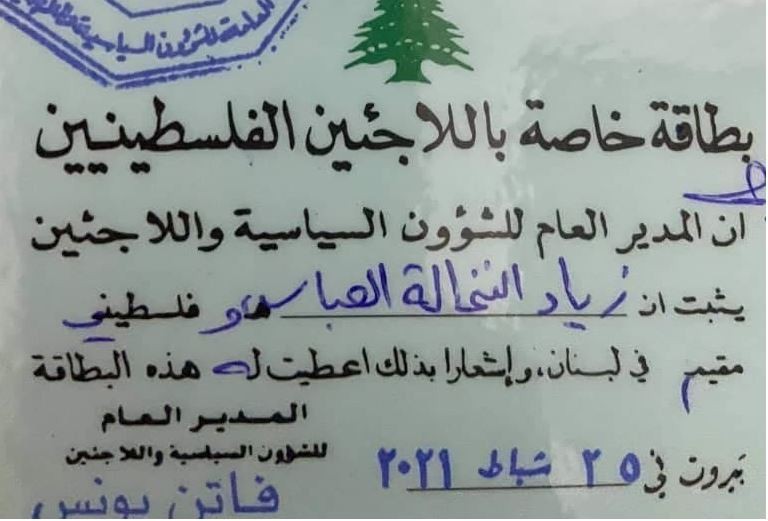 العامة للشؤون السياسية
بطاقة خاصة باللاجئين الفلسطينيين
ان المدير العام للشؤون السياسية واللاجئين
يثبت ان زياد النخالة العباس هو فلسطيني
مقيم في لبنان، وإشعارا بذلك اعطيت له هذه البطاقة
المدير العام
للشؤون السياسية واللاجئين
بيروت في ٢٥ شباط ٢٠٢١
فاتن يونس